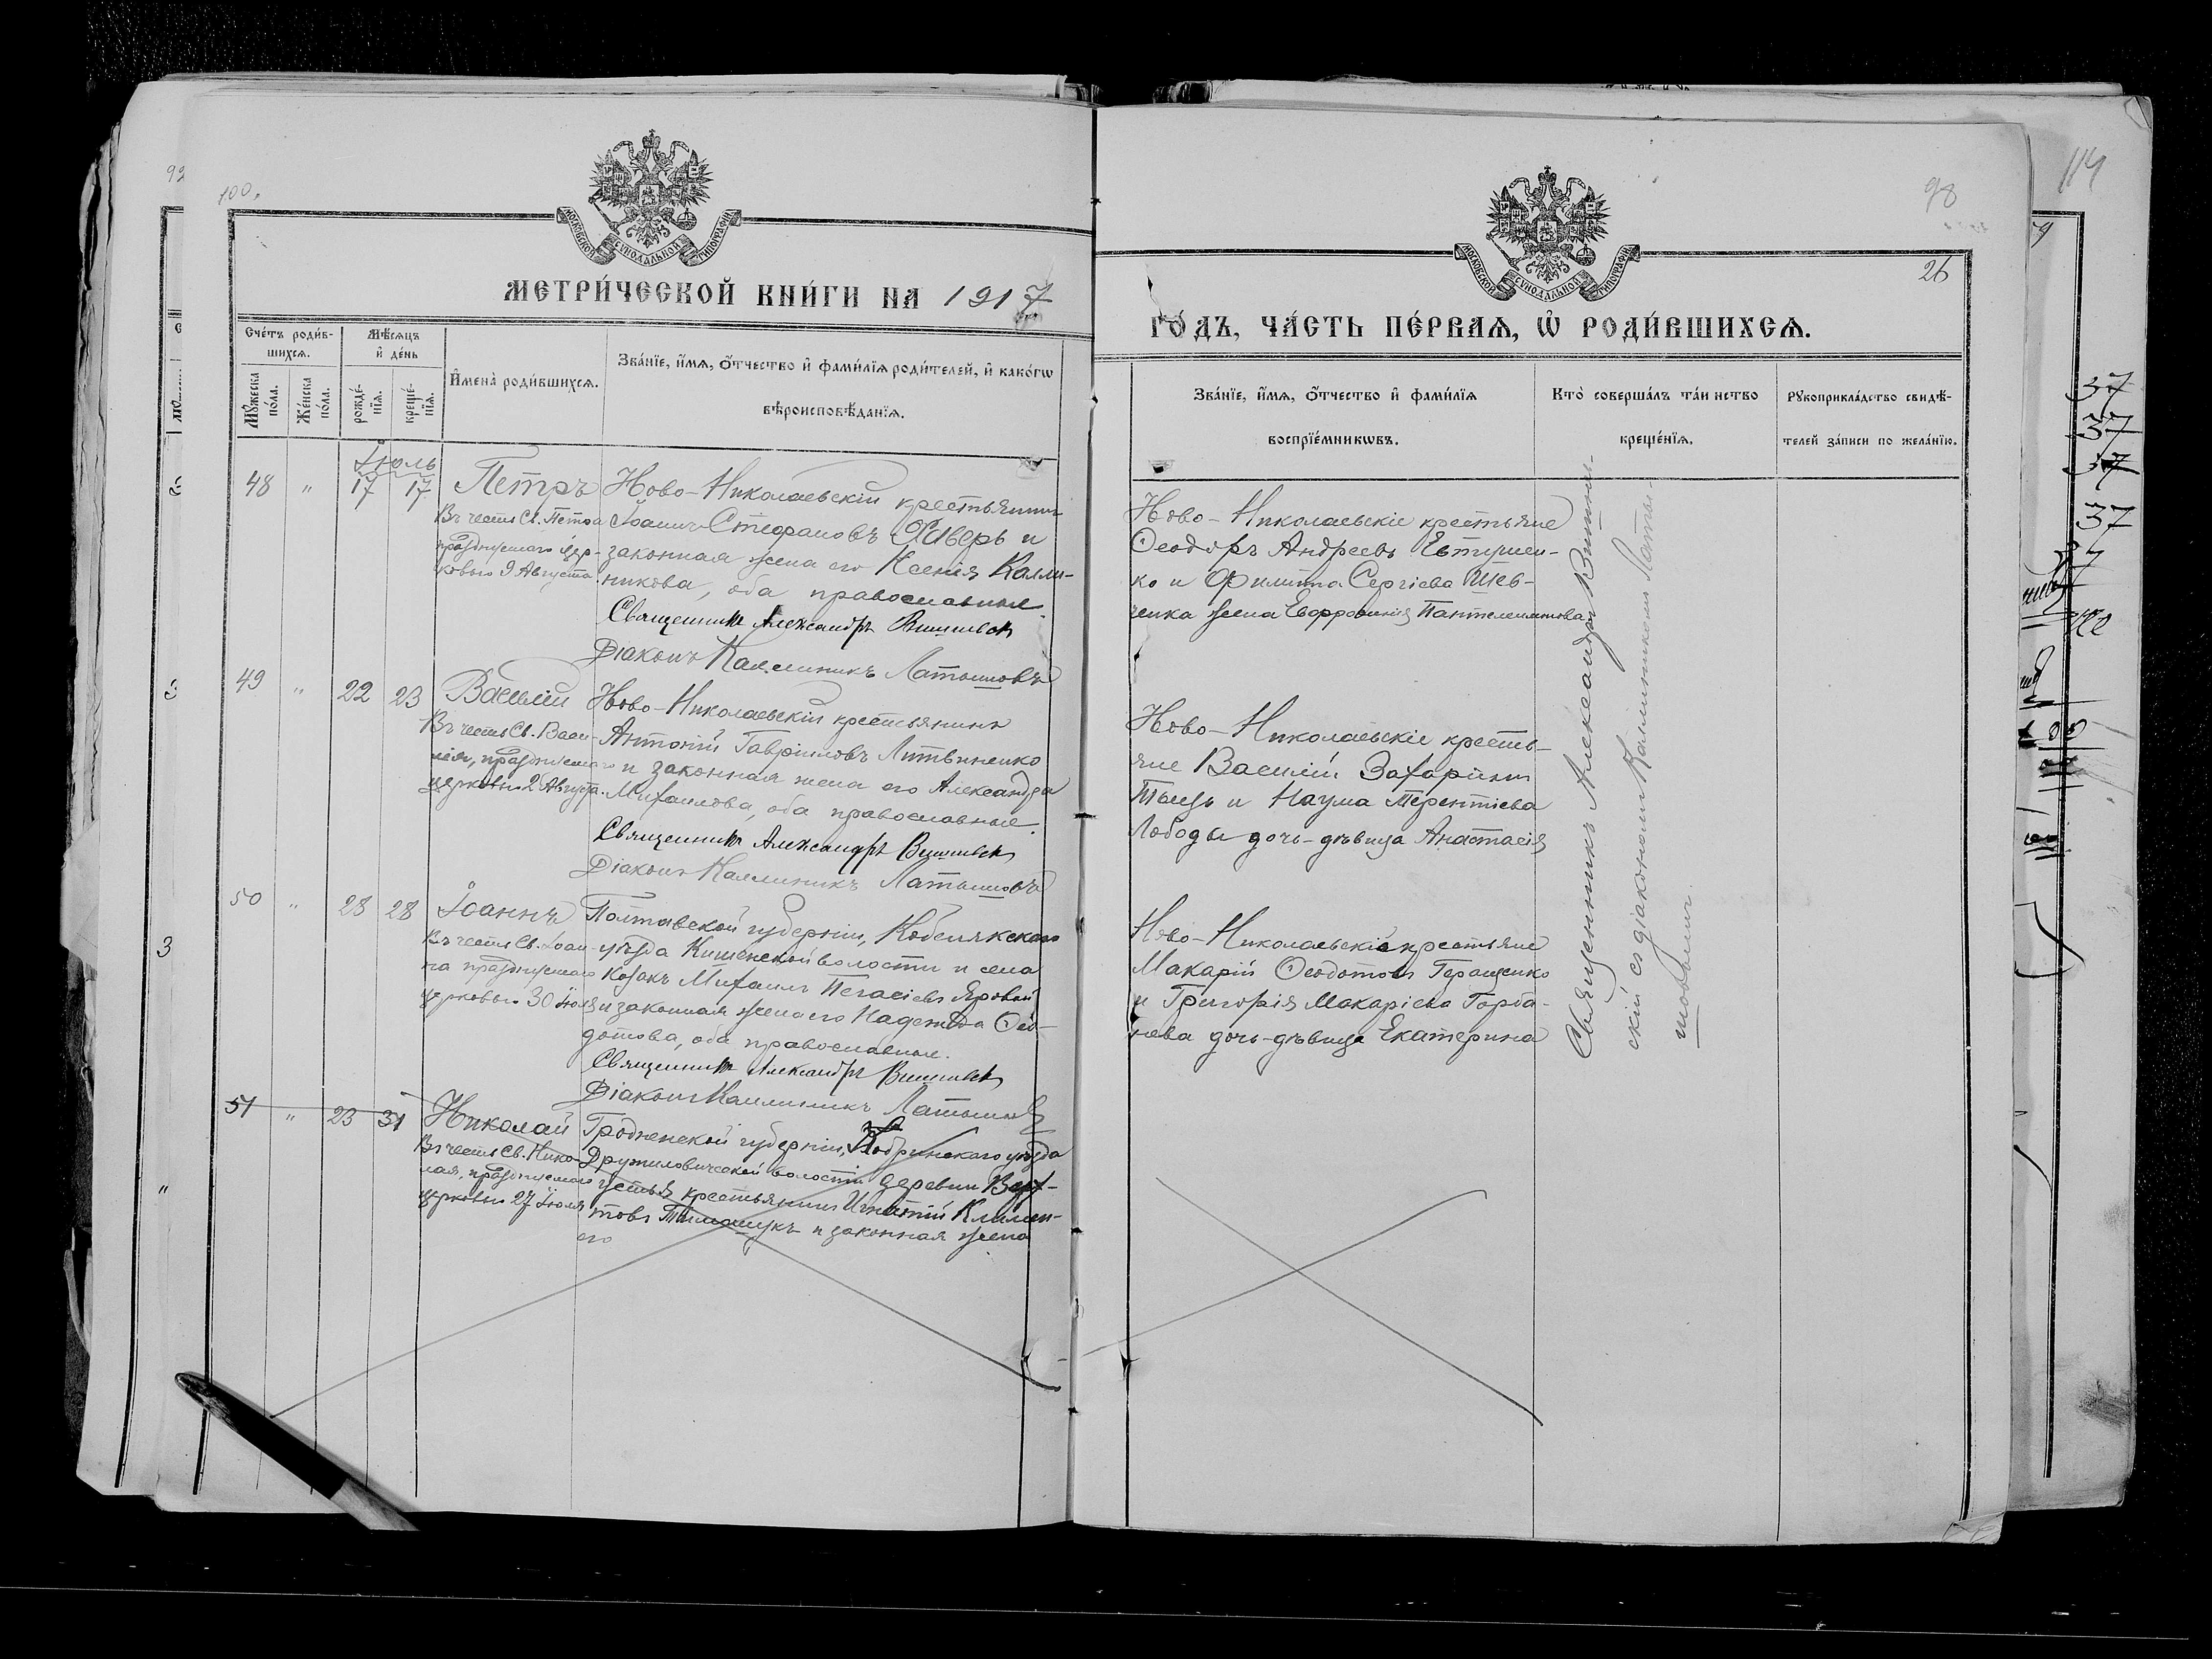 92
100.
МОСКОВСКОЙ СѴНОДАЛЬНОЙ ТИПОГРАФІИ
МЕТРИ́ЧЕСКОЙ КНИ́ГИ НА 1917
Сче́тъ роди́в-
шихсѧ.
Мѣ́сѧцъ
и҆ де́нь
Мꙋ́жеска
по́ла.
Же́нска
по́ла.
рожде́-
нїѧ.
креще́-
нїѧ.
И҆мена̀ роди́вшихсѧ.
Зва́нїе, и҆́мѧ, ѻ҆́тчество и҆ фами́лїѧ роди́телей, и҆ како́гѡ
вѣроисповѣ́данїѧ.
Іюль
48 " 17 17 Петръ
Въ честь Св. Петра
празднуемаго цер-
ковью 9 Августа.
Ново-Николаевскій крестьянинъ
Іоаннъ Стефановъ и
законная жена его Ксенія Калли-
никова, оба православные.
Священникъ Александръ
Діаконъ Каллиникъ Латышовъ
49 " 22 23 Василій
Въ честь Св. Васи-
лія, празднуемаго
церковью 2 Августа.
Ново-Николаевскій крестьянинъ
Антоній Гавріиловъ Литвиненко
и законная жена его Александра
Михаилова, оба православные.
Священникъ Александръ
Діаконъ Каллиникъ Латышовъ
50 " 28 28 Іоаннъ
Въ честь Св. Іоан-
на празднуемаго
церковью 30 Іюля
Полтавской губерніи, Кобелякскаго
уѣзда Кишенской волости и села
козакъ Михаилъ Пегасіевъ Яровой
и законная жена его Надежда Ѳео-
дотова, оба православные.
Священникъ Александръ
Діаконъ Каллиникъ Латышовъ
51 " 23 31 Николай
Въ честь Св. Нико-
лая, празднуемаго
церковью 27 Іюля
Гродненской губерніи, Кобринскаго уѣзда
Дружиловической волости деревни Верх-
устья крестьянинъ Игнатій Климен-
товъ Тимошукъ и законная жена
его
98
26
114
МОСКОВСКОЙ СѴНОДАЛЬНОЙ ТИПОГРАФІИ
ГО́ДЪ, ЧА́СТЬ ПЕ́РВАѦ, Ѡ҆ РОДИ́ВШИХСѦ.
Зва́нїе, и҆́мѧ, ѻ҆́тчество и҆ фами́лїѧ
воспрїе́мникѡвъ.
Кто̀ соверша́лъ та́инство
креще́нїѧ.
Рꙋкоприкла́дство свидѣ́-
телей за́писи по жела́нїю.
Ново-Николаевскіе крестьяне
Ѳеодоръ Андреевъ Евтушен-
ко и Филиппа Сергіева Шев-
ченка жена Евфросинія Пантелеимонова
Ново-Николаевскіе кресть-
яне Василій Захаріинъ
и Наума Терентіева
Лободы дочь-дѣвица Анастасія
Ново-Николаевскіе крестьяне
Макарій Ѳеодотовъ Геращенко
и Григорія Макаріева Горба-
нева дочь-дѣвица Екатерина
Священникъ Александръ
скій съ діакономъ Каллиникомъ Латы-
шовымъ.
37
37
37
37